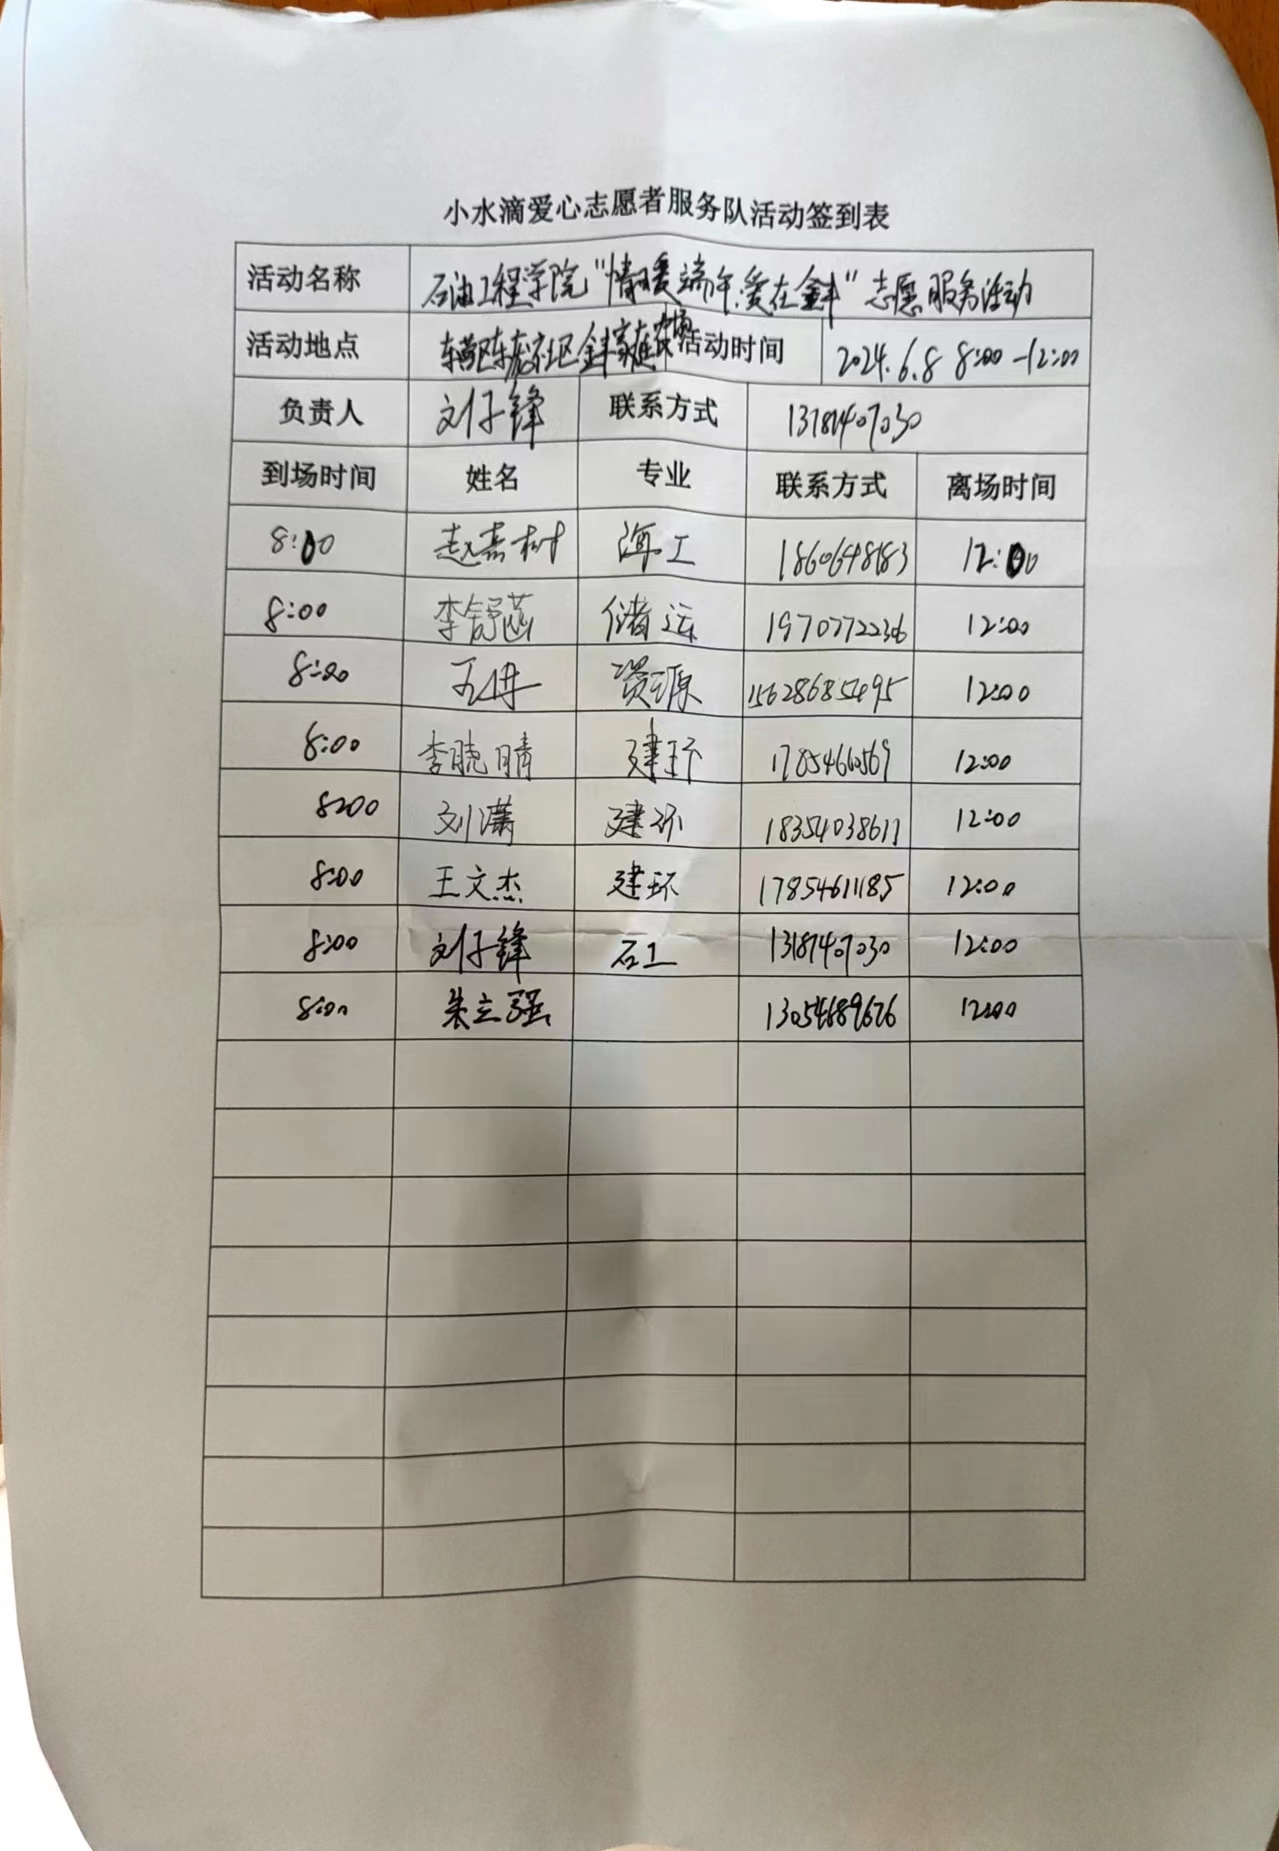 小水滴爱心志愿者服务队活动签到表
活动名称 石油工程学院"情暖端午,爱在金丰"志愿服务活动
活动地点 东营区东 社区金丰家庭农场 活动时间 2024.6.8 8:00-12:00
负责人 刘子锋 联系方式 13181407030
到场时间 姓名 专业 联系方式 离场时间
8:00 赵嘉树 海工 12:00
8:00 李舒菡 储运 12:00
8:00 资源 15628685495 12:00
8:00 李晓晴 建环 12:00
8:00 刘潇 建环 18354038611 12:00
8:00 王文杰 建环 17854611185 12:00
8:00 刘子锋 石工 12:00
8:00 朱立强 13054689676 12:00